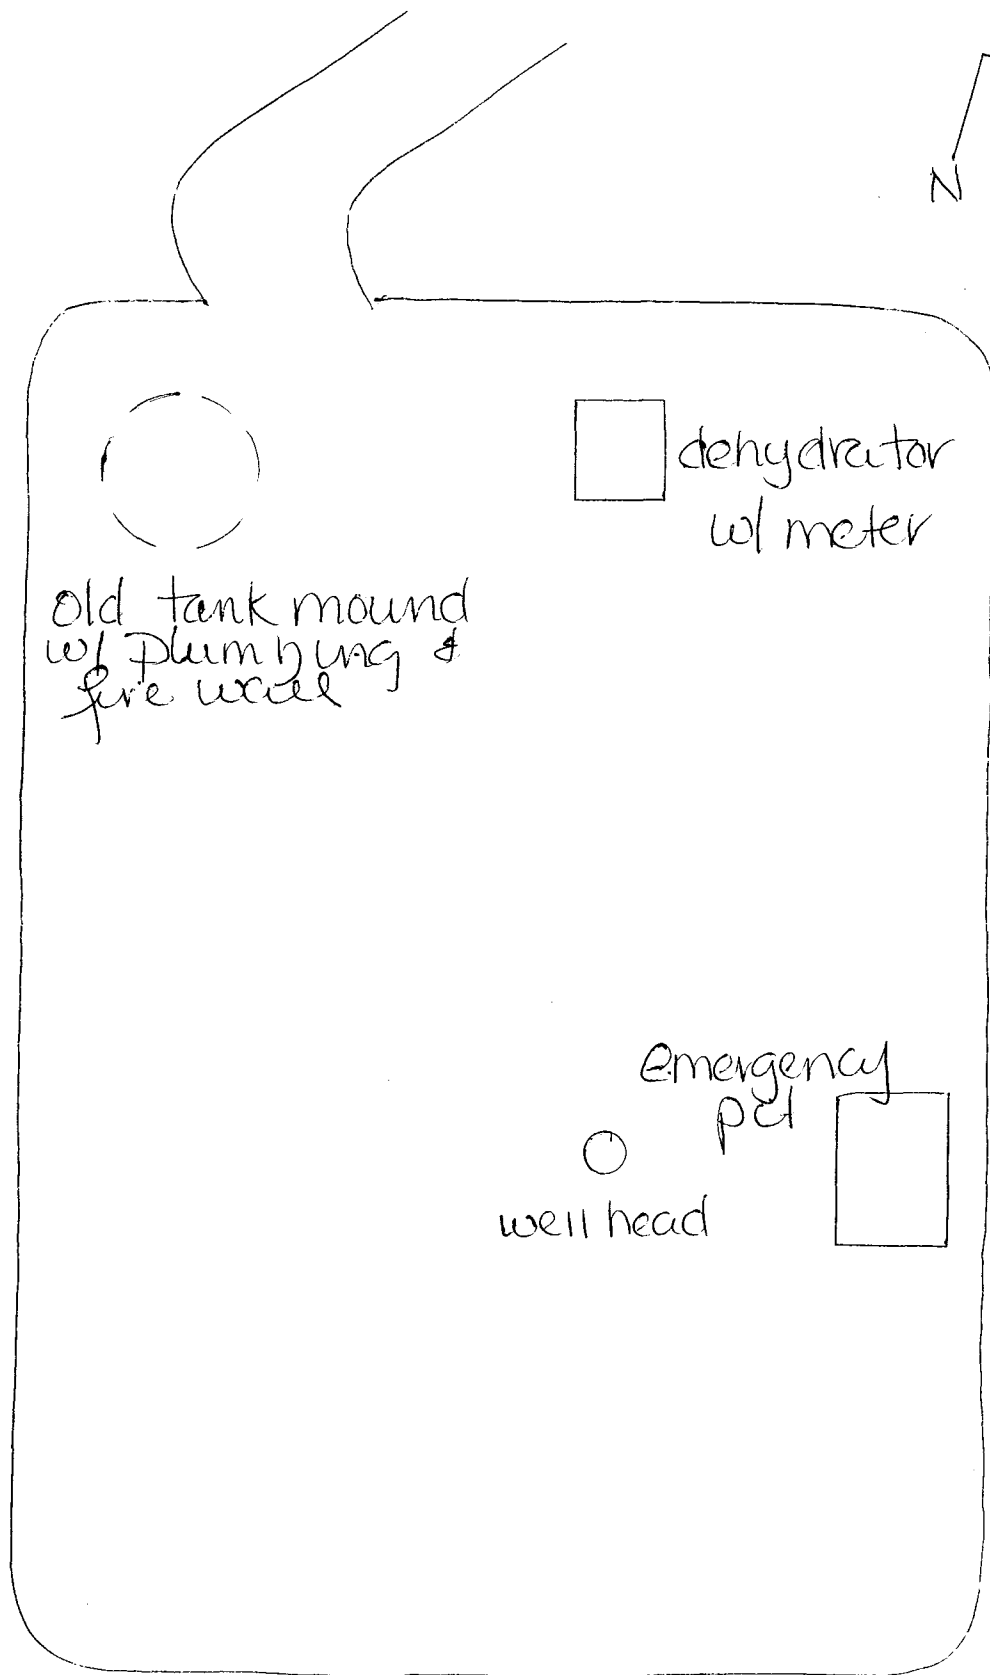 N
dehydrator
w/ meter
old tank mound
w/ plumbing &
fire wall
emergency
pit
well head